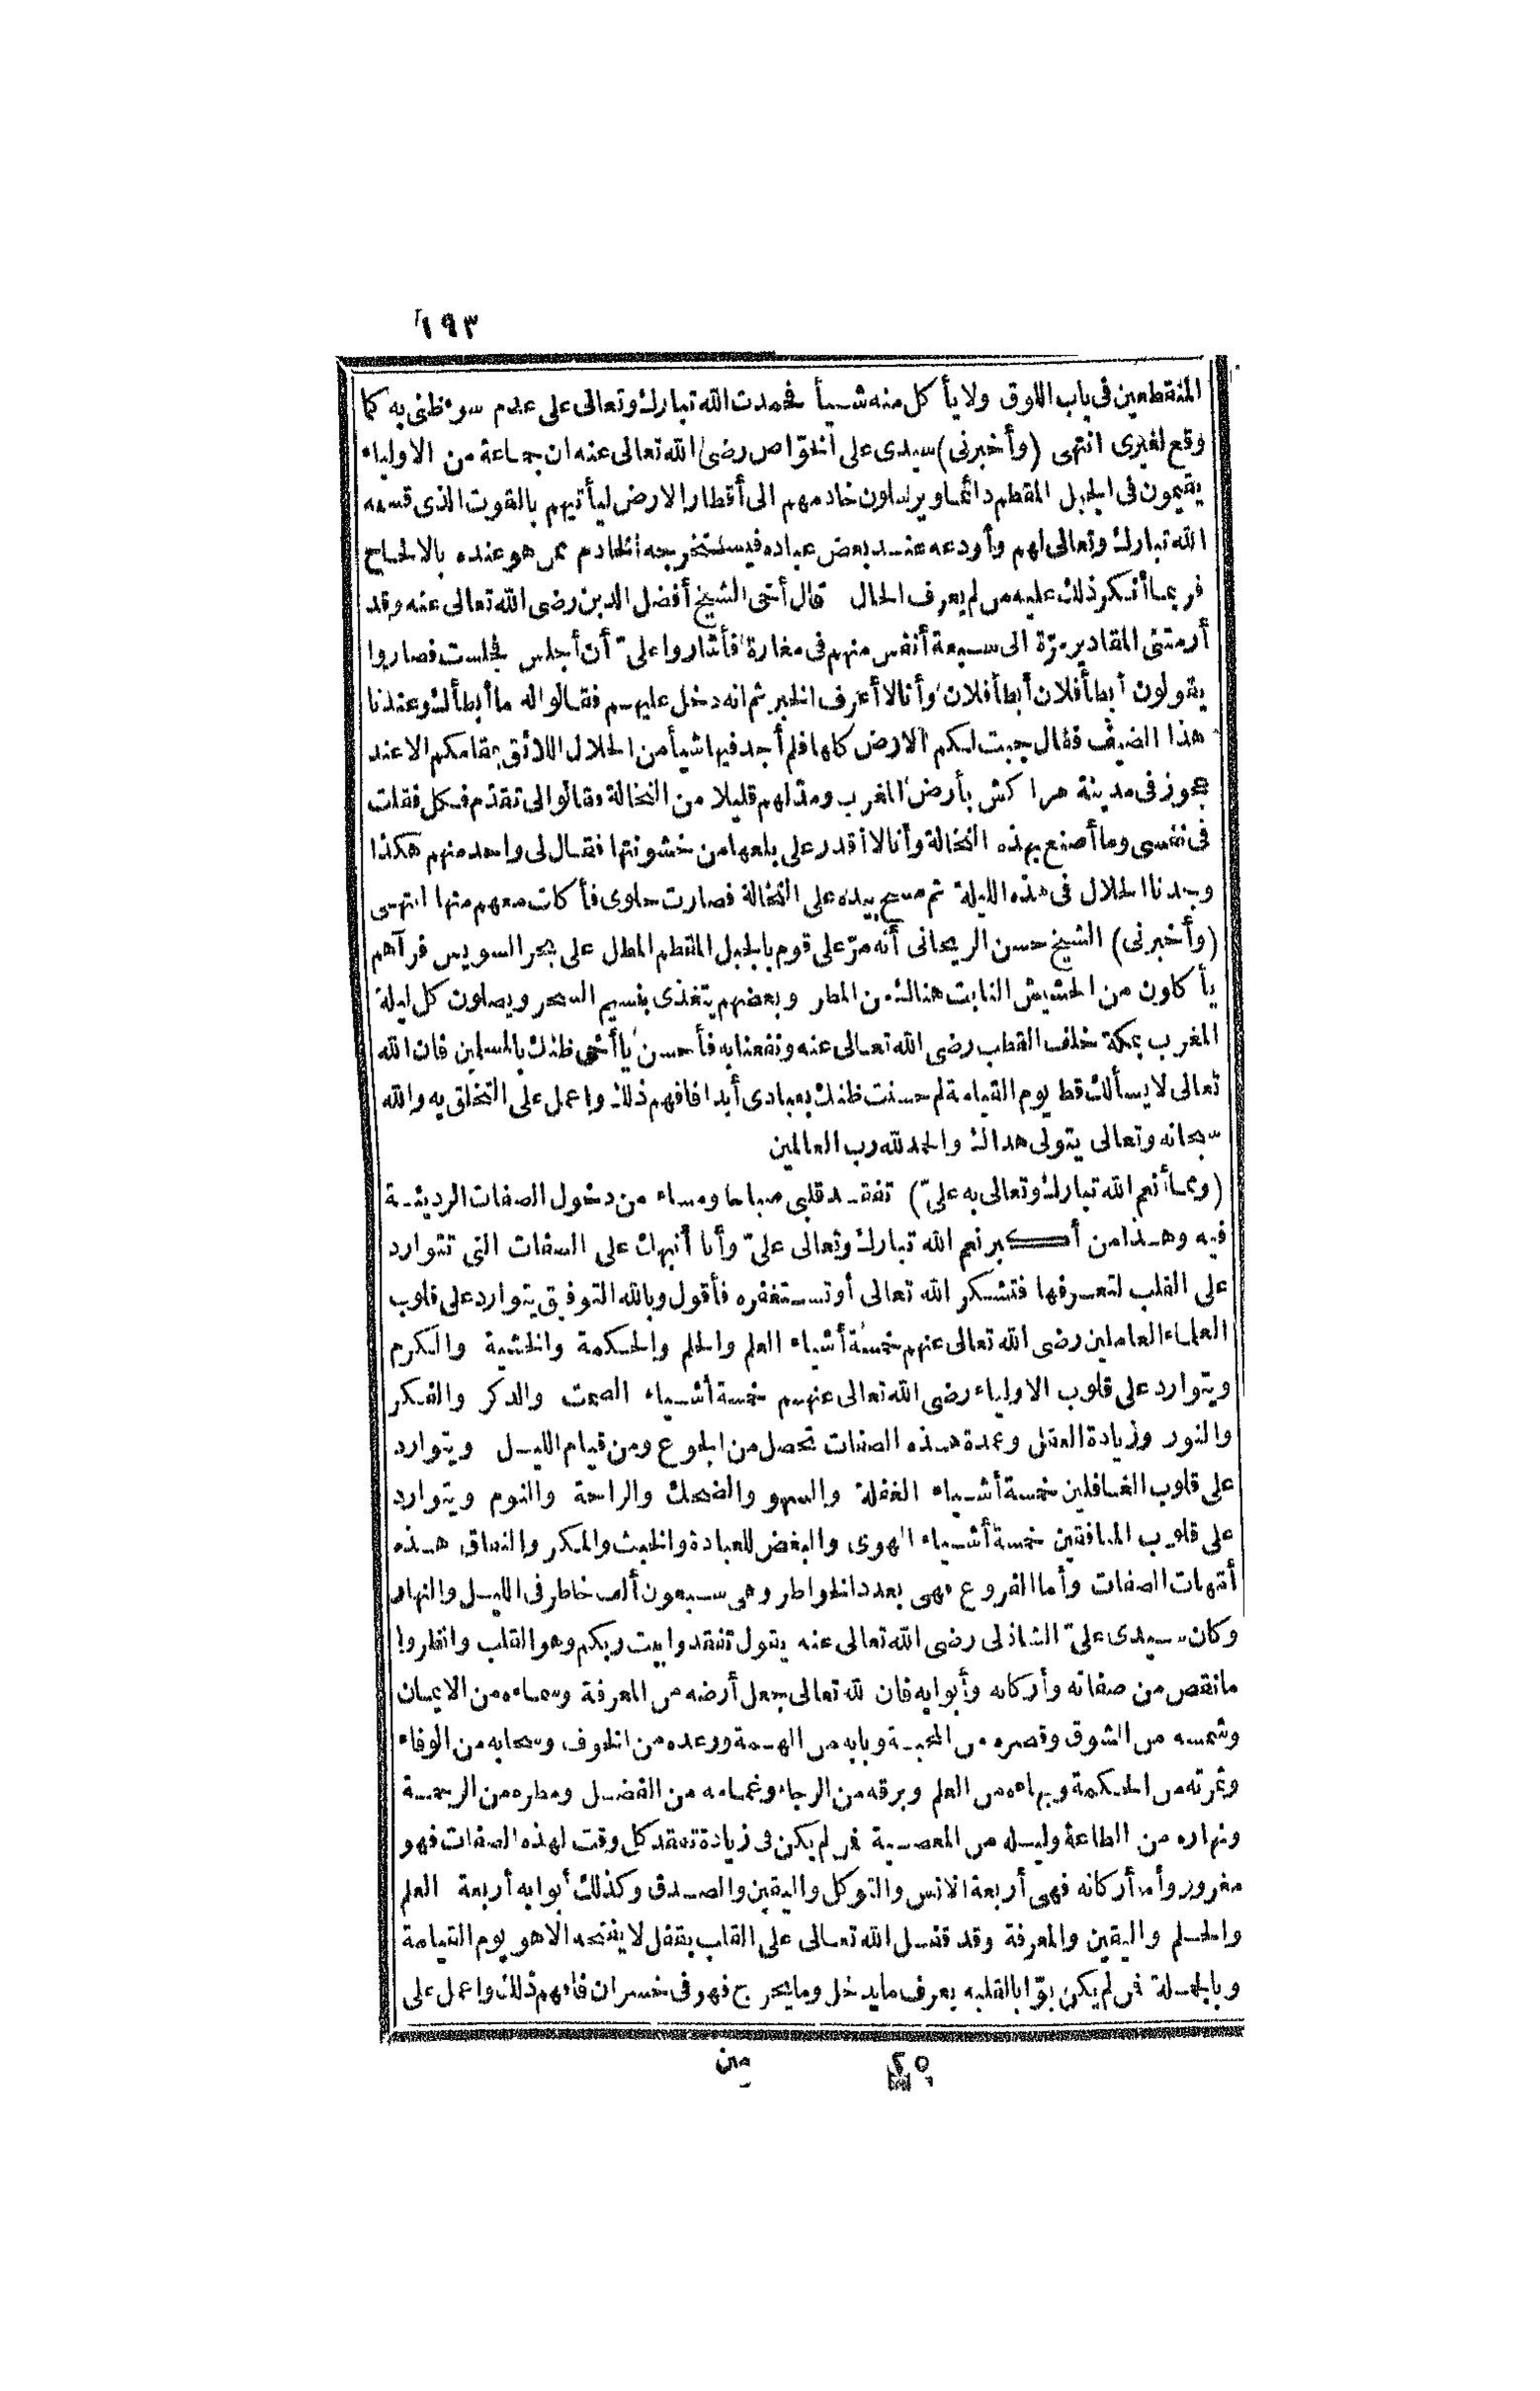 ١٩٣
المنقطعين فى باب اللوق ولا يأكل منه شيأ فحمدت الله تبارك وتعالى على عدم سوء ظنى به كما
وقع لغيرى انتهى (وأخبرنى) سيدى على الخوّاص رضى الله تعالى عنه ان جماعة من الاولياء
يقيمون فى الجبل المقطم دائما ويرسلون خادمهم الى أقطار الارض ليأتيهم بالقوت الذى قسمه
الله تبارك وتعالى لهم وأودعه عند بعض عباده فيستخرجه الخادم ممن هو عنده بالالحاح
فربما أنكر ذلك عليه من لم يعرف الحال قال أخى الشيخ أفضل الدين رضى الله تعالى عنه وقد
أرمتنى المقادير مرّة الى سبعة أنفس منهم فى مغارة فأشاروا علىّ أن أجلس فجلست فصاروا
يقولون أبطأ فلان أبطأ فلان وأنا لا أعرف الخبر ثم انه دخل عليهم فقالوا له ما أبطأك وعندنا
هذا الضيف فقال جبت لكم الارض كلها فلم أجد فيها شيأ من الحلال اللائق بمقامكم الا عند
عجوز فى مدينة مراكش بأرض المغرب ومد لهم قليلا من النخالة وقالوا لى تقدّم فكل فقلت
فى نفسى وما أصنع بهذه النخالة وأنا لا أقدر على بلعها من خشونتها فقال لى واحد منهم هكذا
وجدنا الحلال فى هذه الليلة ثم مسح بيده على النخالة فصارت حلوى فأكلت معهم منها انتهى
(وأخبرنى) الشيخ حسن الريحانى أنه مرّ على قوم بالجبل المقطم المطل على بحر السويس فرآهم
يأكلون من الحشيش النابت هنالك من المطر وبعضهم يتغذى بنسيم السحر ويصلون كل ليلة
المغرب بمكة خلف القطب رضى الله تعالى عنه ونفعنا به فأحسن يا أخى ظنك بالمسلمين فان الله
تعالى لا يسألك قط يوم القيامة لم حسنت ظنك بعبادى أبدا فافهم ذلك واعمل على التخلق به والله
سبحانه وتعالى يتولى هداك والحمد لله رب العالمين
(ومما أنعم الله تبارك وتعالى به علىّ) تفقد قلبى صباحا ومساء من دخول الصفات الرديئة
فيه وهذا من أكبر نعم الله تبارك وتعالى علىّ وأنا أنبهك على الصفات التى تتوارد
على القلب لتعرفها فتشكر الله تعالى أو تستغفره فأقول وبالله التوفيق يتوارد على قلوب
العلماء العاملين رضى الله تعالى عنهم خمسة أشياء العلم والحلم والحكمة والخشية والكرم
ويتوارد على قلوب الاولياء رضى الله تعالى عنهم خمسة أشياء الصمت والذكر والفكر
والنور وزيادة العقل وعمدة هذه الصفات تحصل من الجوع ومن قيام الليل ويتوارد
على قلوب الغافلين خمسة أشياء الغفلة والسهو والضحك والراحة والنوم ويتوارد
على قلوب المنافقين خمسة أشياء الهوى والبغض للعبادة والخبث والمكر والنفاق هذه
أمّهات الصفات وأما الفروع فهى بعدد الخواطر وهى سبعون ألف خاطر فى الليل والنهار
وكان سيدى علىّ الشاذلى رضى الله تعالى عنه يقول تفقدوا بيت ربكم وهو القلب وانظروا
ما نقص من صفاته وأركانه وأبوابه فان لله تعالى جعل أرضه من المعرفة وسماءه من الايمان
وشمسه من الشوق وقصره من المحبة وبابه من الهمة ورعده من الخوف وسحابه من الوفاء
وثمرته من الحكمة وبهاءه من العلم وبرقه من الرجاء وغمامه من الفضل ومطره من الرحمة
ونهاره من الطاعة وليله من المعصية فمن لم يكن فى زيادة تفقد كل وقت لهذه الصفات فهو
مغرور وأما أركانه فهى أربعة الانس والتوكل واليقين والصدق وكذلك أبوابه أربعة العلم
والحلم واليقين والمعرفة وقد قفل الله تعالى على القلب بقفل لا يفتحه الا هو يوم القيامة
وبالجملة فمن لم يكن بوّابا لقلبه يعرف ما يدخل وما يخرج فهو فى خسران فافهم ذلك واعمل على
٢٥ من